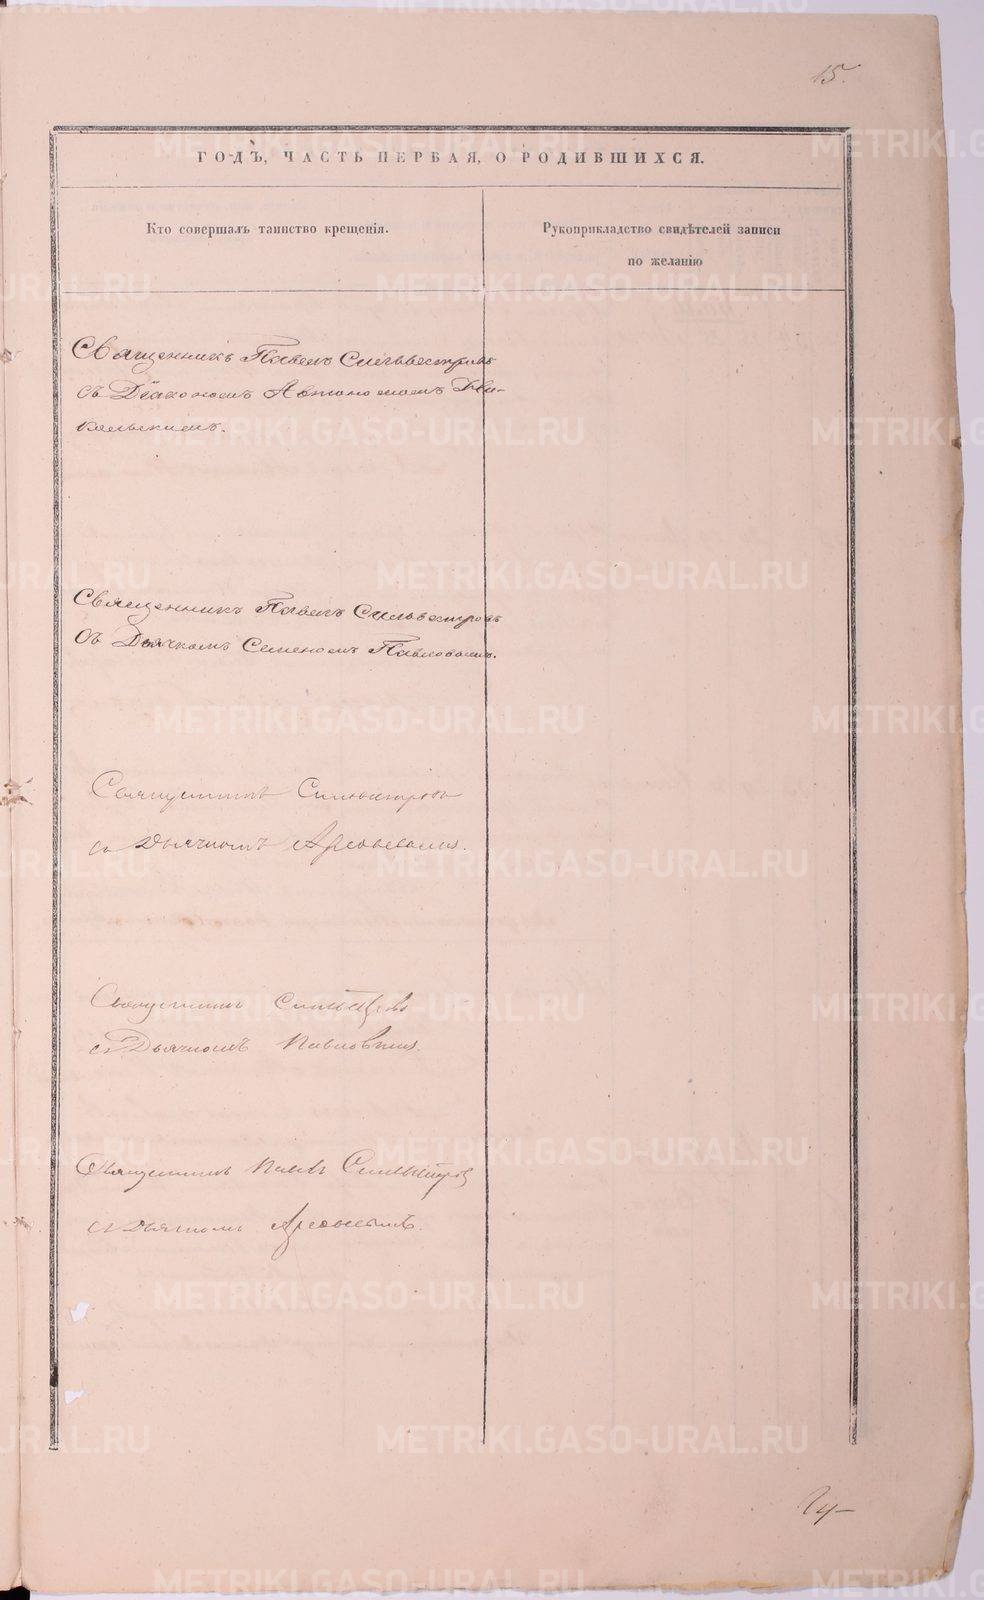 15.
ГОДЪ, ЧАСТЬ ПЕРВАЯ, О РОДИВШИХСЯ.
Кто совершалъ таинство крещенія.
Рукоприкладство свидѣтелей записи
по желанію
Священникъ Павелъ Сильвестровъ
съ Діакономъ Автономомъ Ни-
кольскимъ.
Священникъ Павелъ Сильвестровъ
Съ Дьячкомъ Семеномъ Павловымъ.
Священникъ Сильвестровъ
съ Дьячкомъ
Священникъ Сильвестровъ
съ Дьячкомъ Павловымъ
Священникъ Павелъ Сильвестровъ
съ Дьячкомъ
METRIKI.GASO-URAL.RU